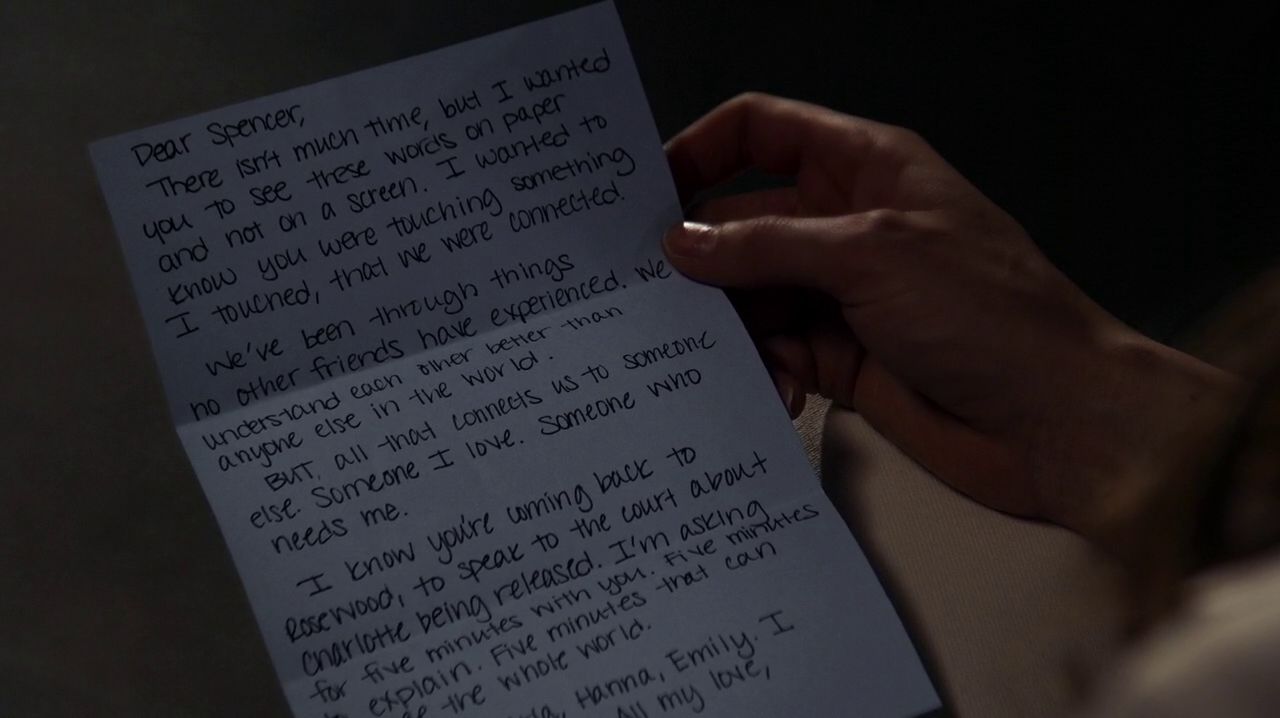 Dear Spencer,
There isn't much time, but I wanted
you to see these words on paper
and not on a screen. I wanted to
know you were touching something
I touched, that we were connected.
We've been through things
no other friends have experienced. We
understand each other better than
anyone else in the world.
BUT, all that connects us to someone
else. Someone I love. Someone who
needs me.
I know you're coming back to
Rosewood, to speak to the court about
Charlotte being released. I'm asking
for five minutes with you. Five minutes
explain. Five minutes that can
the whole world.
Hanna, Emily. I
All my love,